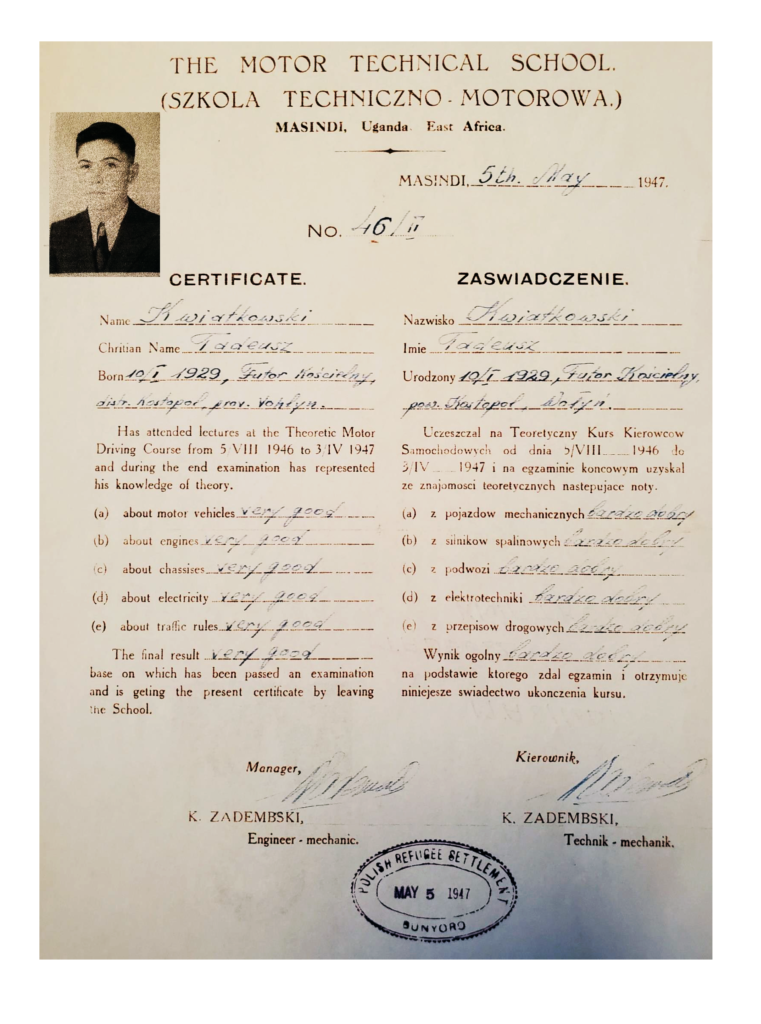 THE MOTOR TECHNICAL SCHOOL.
(SZKOLA TECHNICZNO-MOTOROWA.)
MASINDI, Uganda. East Africa.
MASINDI, 5th. May 1947.
No. 46/II
CERTIFICATE.
Name Kwiatkowski
Chritian Name Tadeusz
Born 10/I 1929, Futor Kościelny,
distr. Kostopol, prov. Vohlyn.
Has attended lectures at the Theoretic Motor
Driving Course from 5/VIII 1946 to 3/IV 1947
and during the end examination has represented
his knowledge of theory.
(a) about motor vehicles very good
(b) about engines very good
(c) about chassises very good
(d) about electricity very good
(e) about traffic rules very good
The final result very good
base on which has been passed an examination
and is geting the present certificate by leaving
the School.
Manager,
K. ZADEMBSKI,
Engineer - mechanic.
ZASWIADCZENIE.
Nazwisko Kwiatkowski
Imie Tadeusz
Urodzony 10/I 1929, Futor Kościelny,
pow. Kostopol, Wołyń.
Uczeszczal na Teoretyczny Kurs Kierowcow
Samochodowych od dnia 5/VIII 1946 do
3/IV 1947 i na egzaminie koncowym uzyskal
ze znajomosci teoretycznych nastepujace noty.
(a) z pojazdow mechanicznych bardzo dobry
(b) z silnikow spalinowych bardzo dobry
(c) z podwozi bardzo dobry
(d) z elektrotechniki bardzo dobry
(e) z przepisow drogowych bardzo dobry
Wynik ogolny bardzo dobry
na podstawie ktorego zdal egzamin i otrzymuje
niniejesze swiadectwo ukonczenia kursu.
Kierownik,
K. ZADEMBSKI,
Technik - mechanik.
POLISH REFUGEE SETTLEMENT
MAY 5 1947
BUNYORO